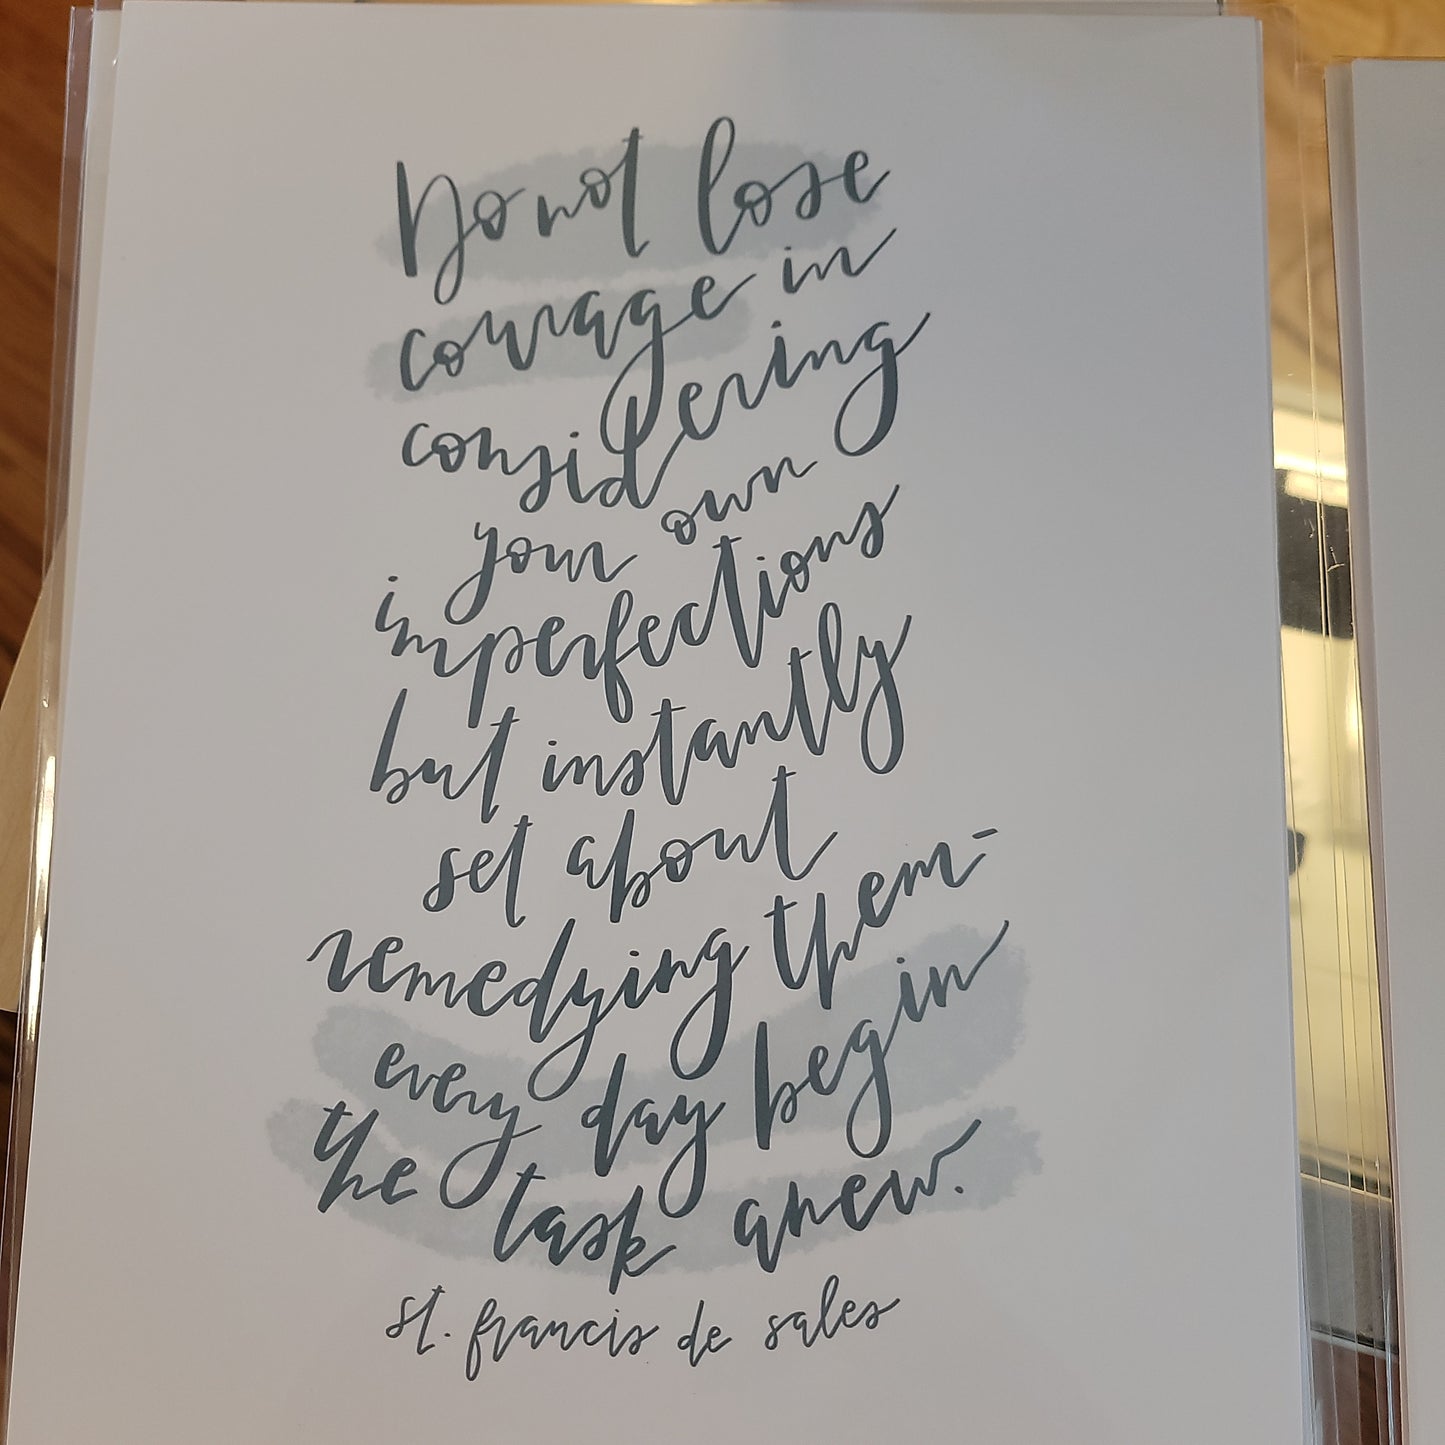 Do not lose
courage in
considering
your own
imperfections
but instantly
set about
remedying them-
every day begin
the task anew.
st. francis de sales